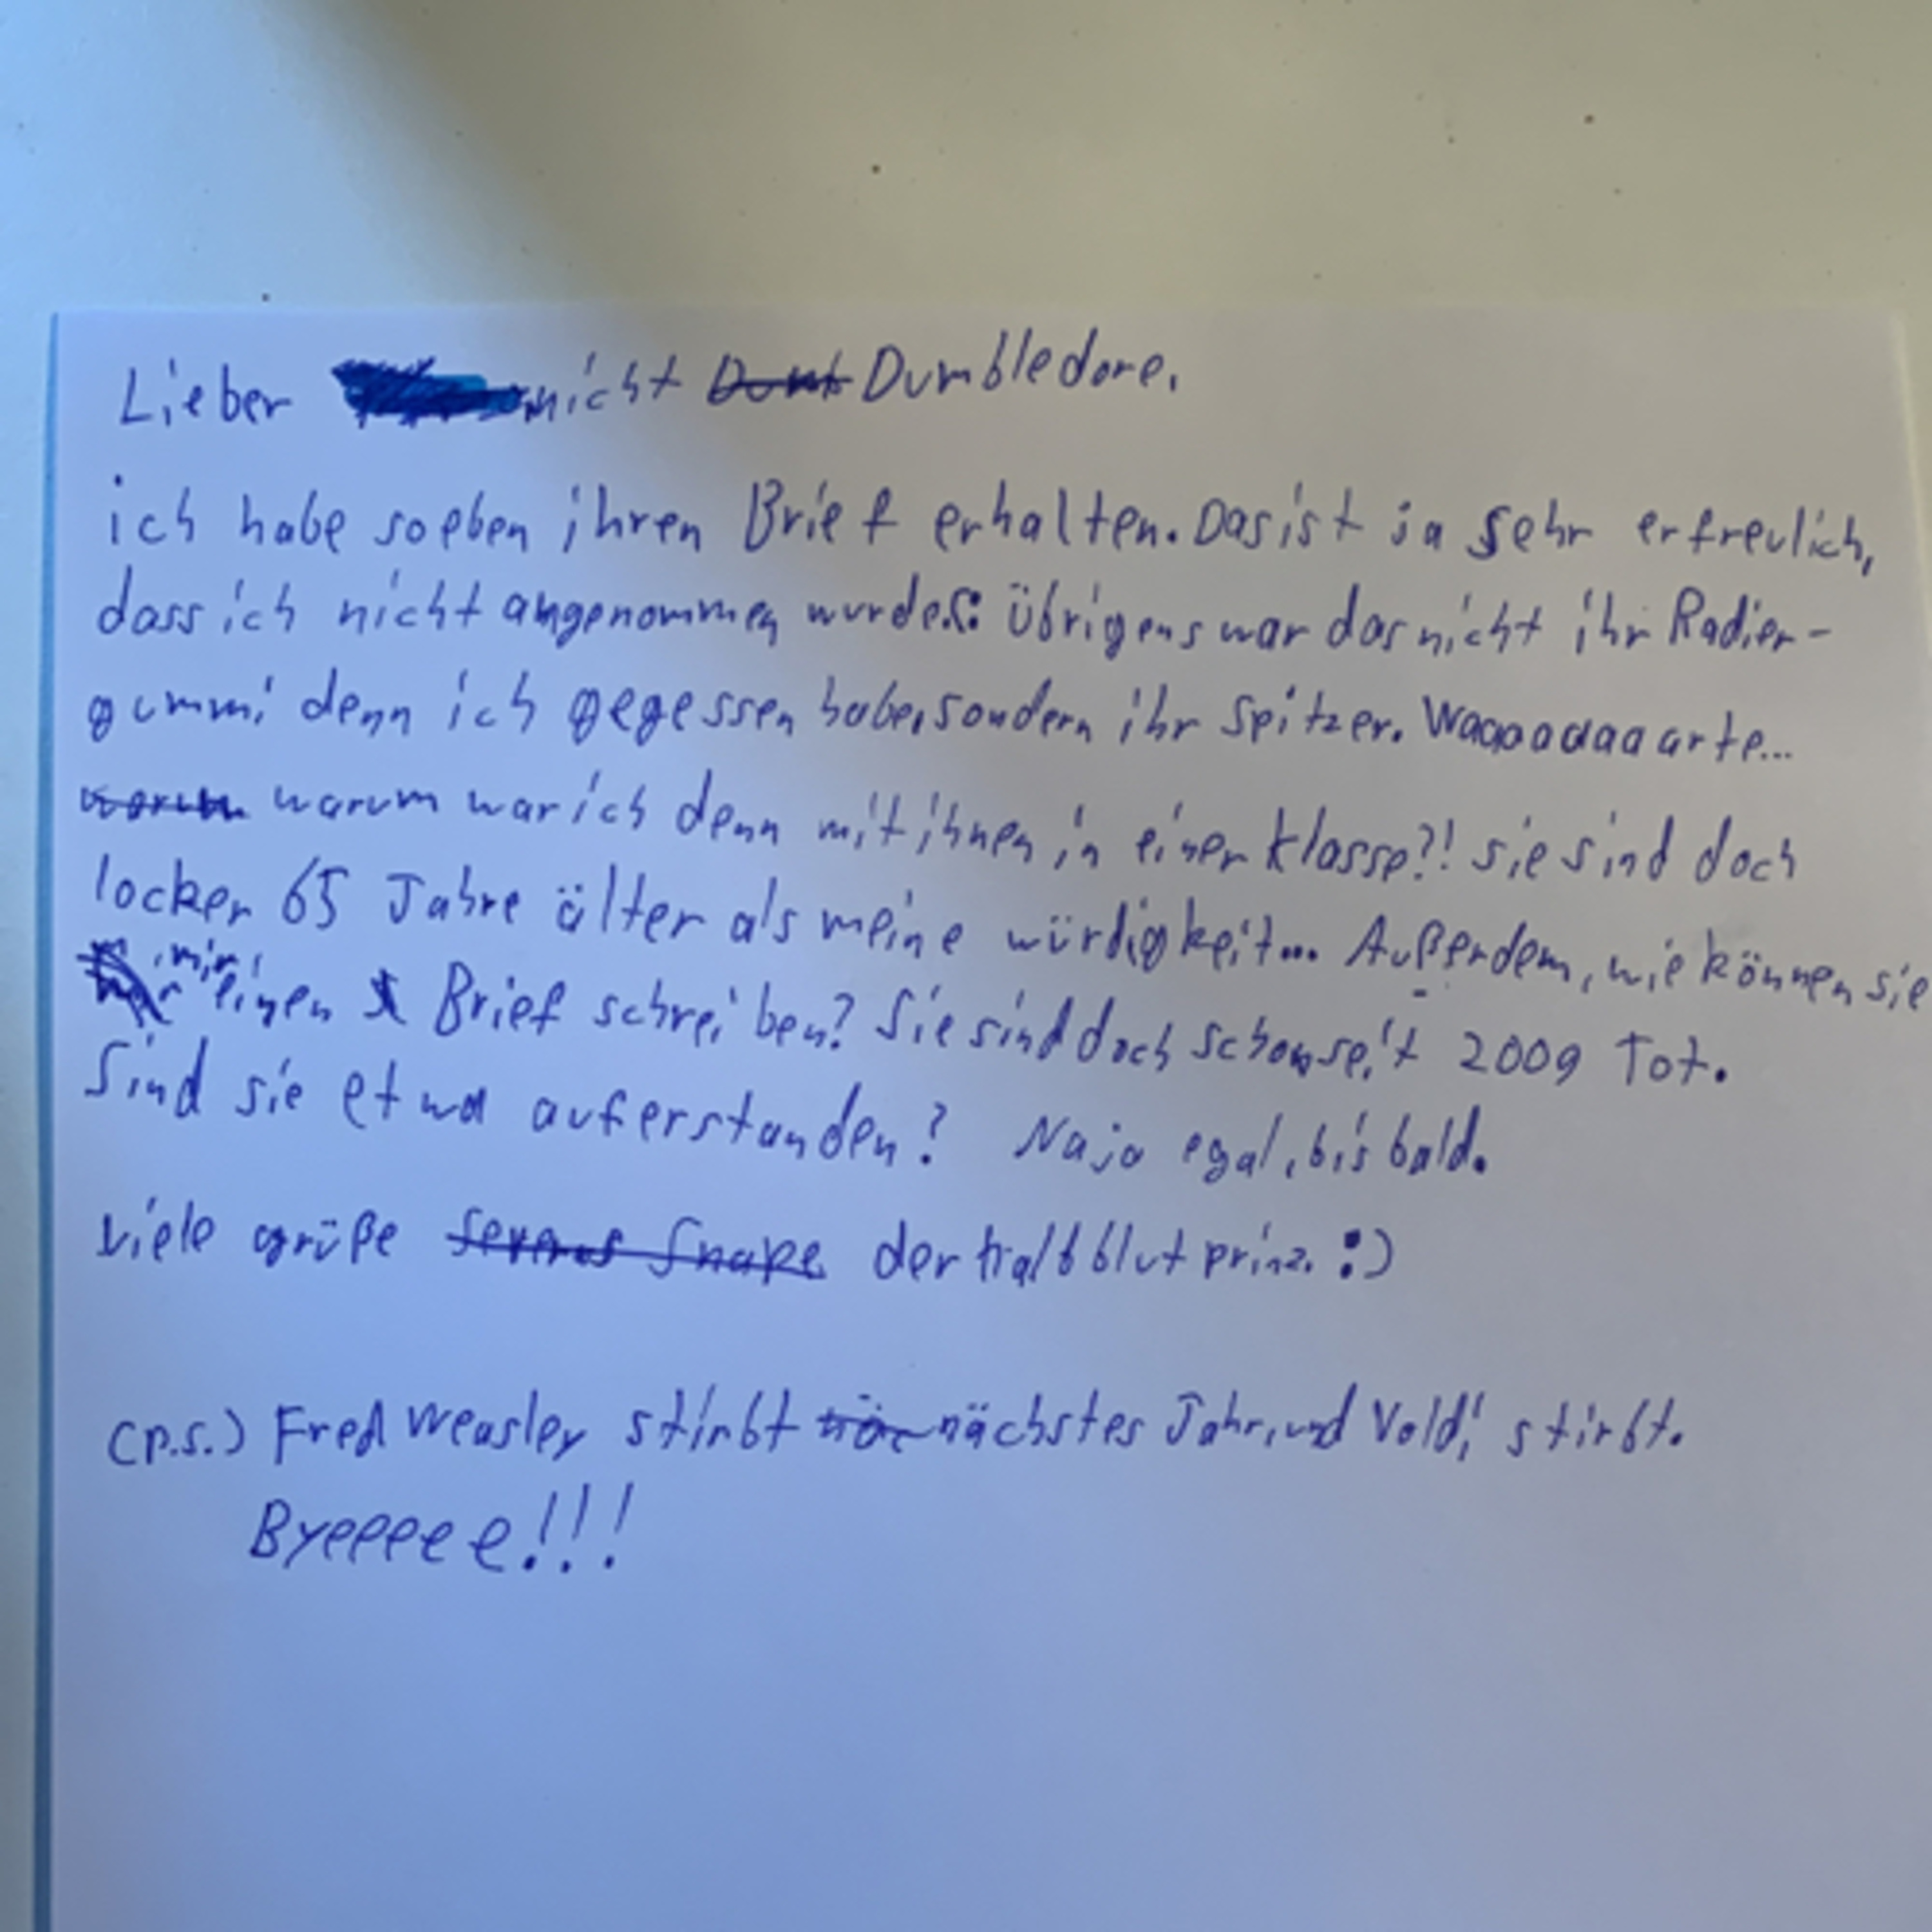 Lieber nicht Dumbledore,
ich habe soeben ihren Brief erhalten. Das ist ja sehr erfreulich,
dass ich nicht angenommen wurde. Übrigens war das nicht ihr Radier-
gummi denn ich gegessen habe, sondern ihr Spitzer. Waaaaaaaarte...
warum war ich denn mit ihnen in einer klasse?! sie sind doch
locker 65 Jahre älter als meine würdigkeit... Außerdem, wie können sie
mir einen Brief schreiben? Sie sind doch schon seit 2009 Tot.
Sind sie etwa auferstanden? Naja egal, bis bald.
viele grüße Severus Snape der halbblutprinz. :)
(p.s.) Fred Weasley stirbt nächstes Jahr, und Voldi stirbt.
Byeeeee!!!